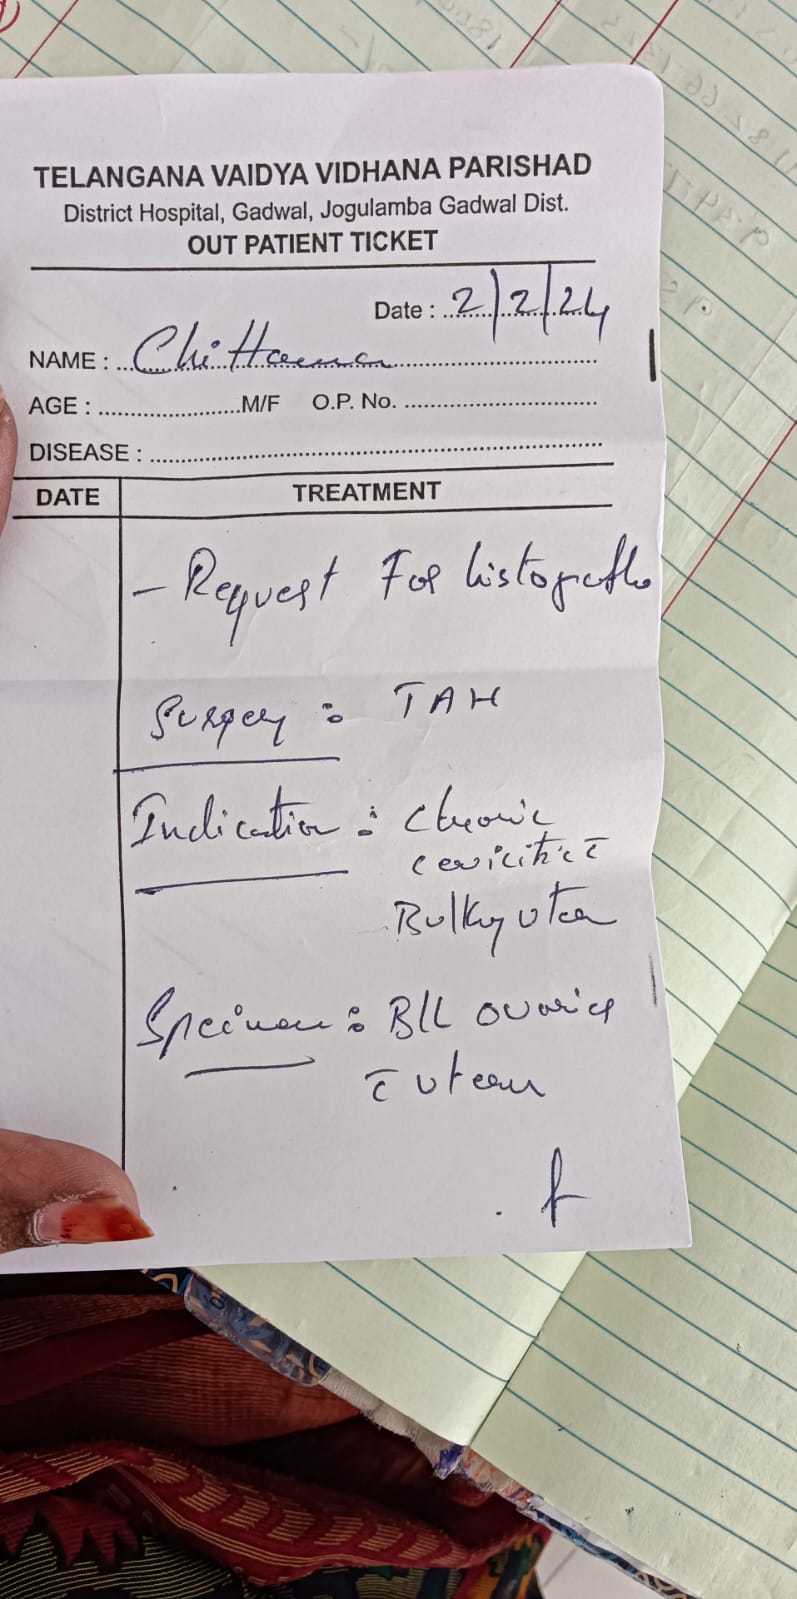 TELANGANA VAIDYA VIDHANA PARISHAD
District Hospital, Gadwal, Jogulamba Gadwal Dist.
OUT PATIENT TICKET
Date : 2/2/24
NAME : Chittamma
AGE : ........................M/F O.P. No. ................................
DISEASE : ................................................................
DATE TREATMENT
- Request For histopatho
Surgery : TAH
Indication : Chronic
cervicitis c̄
Bulky uterus
Specimen : B/L ovaries
c̄ uterus